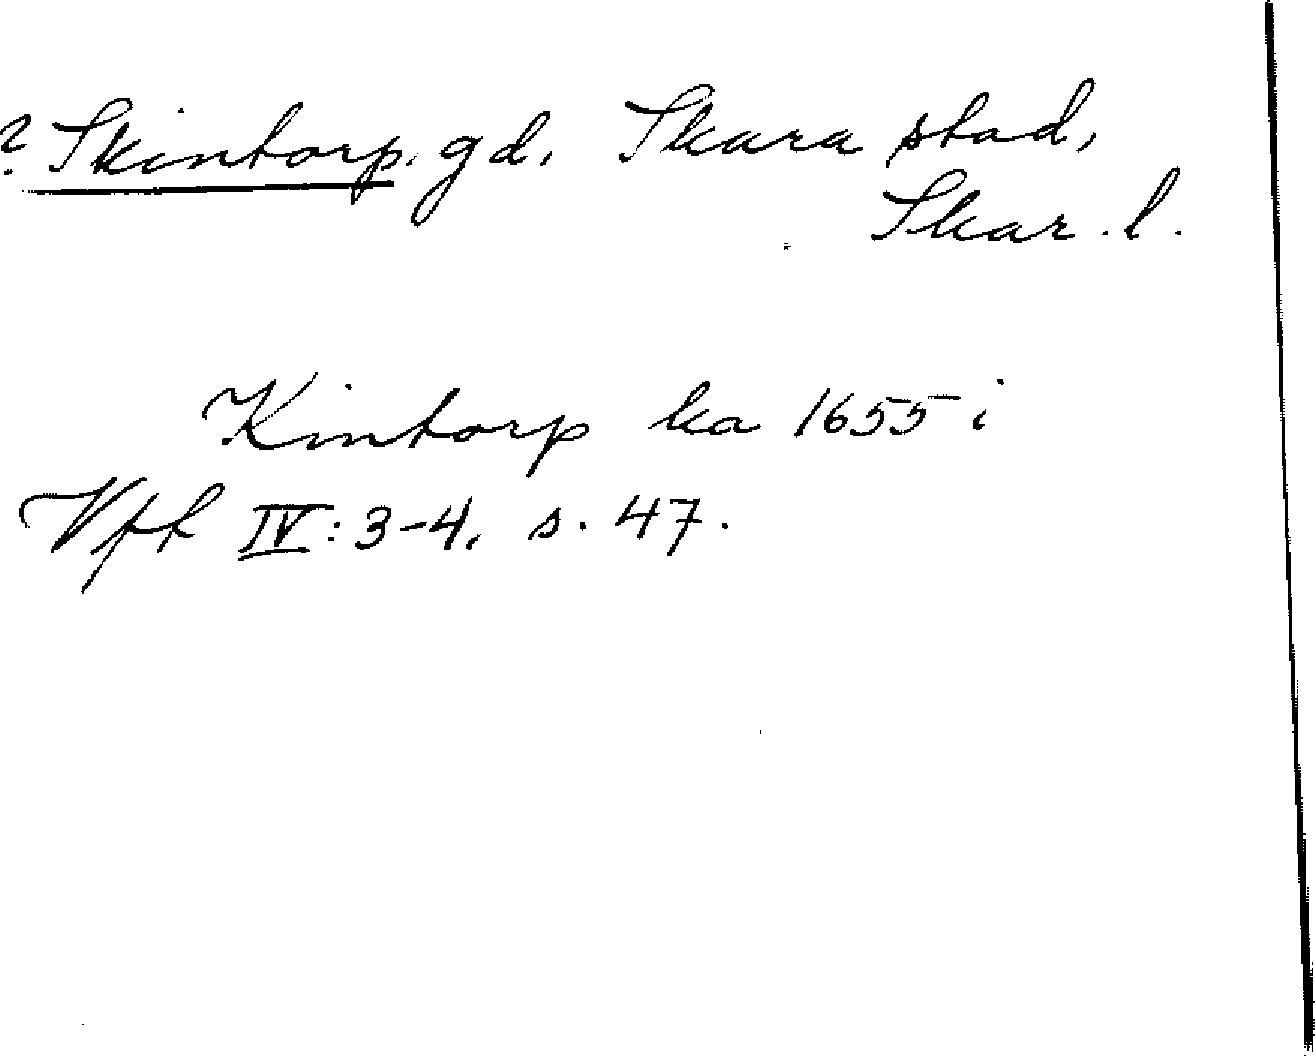 ? Skintorp. gd. Skara stad,
Skar. l.
Kintorp ka 1655 i
Vfh IV: 3-4, s. 47.